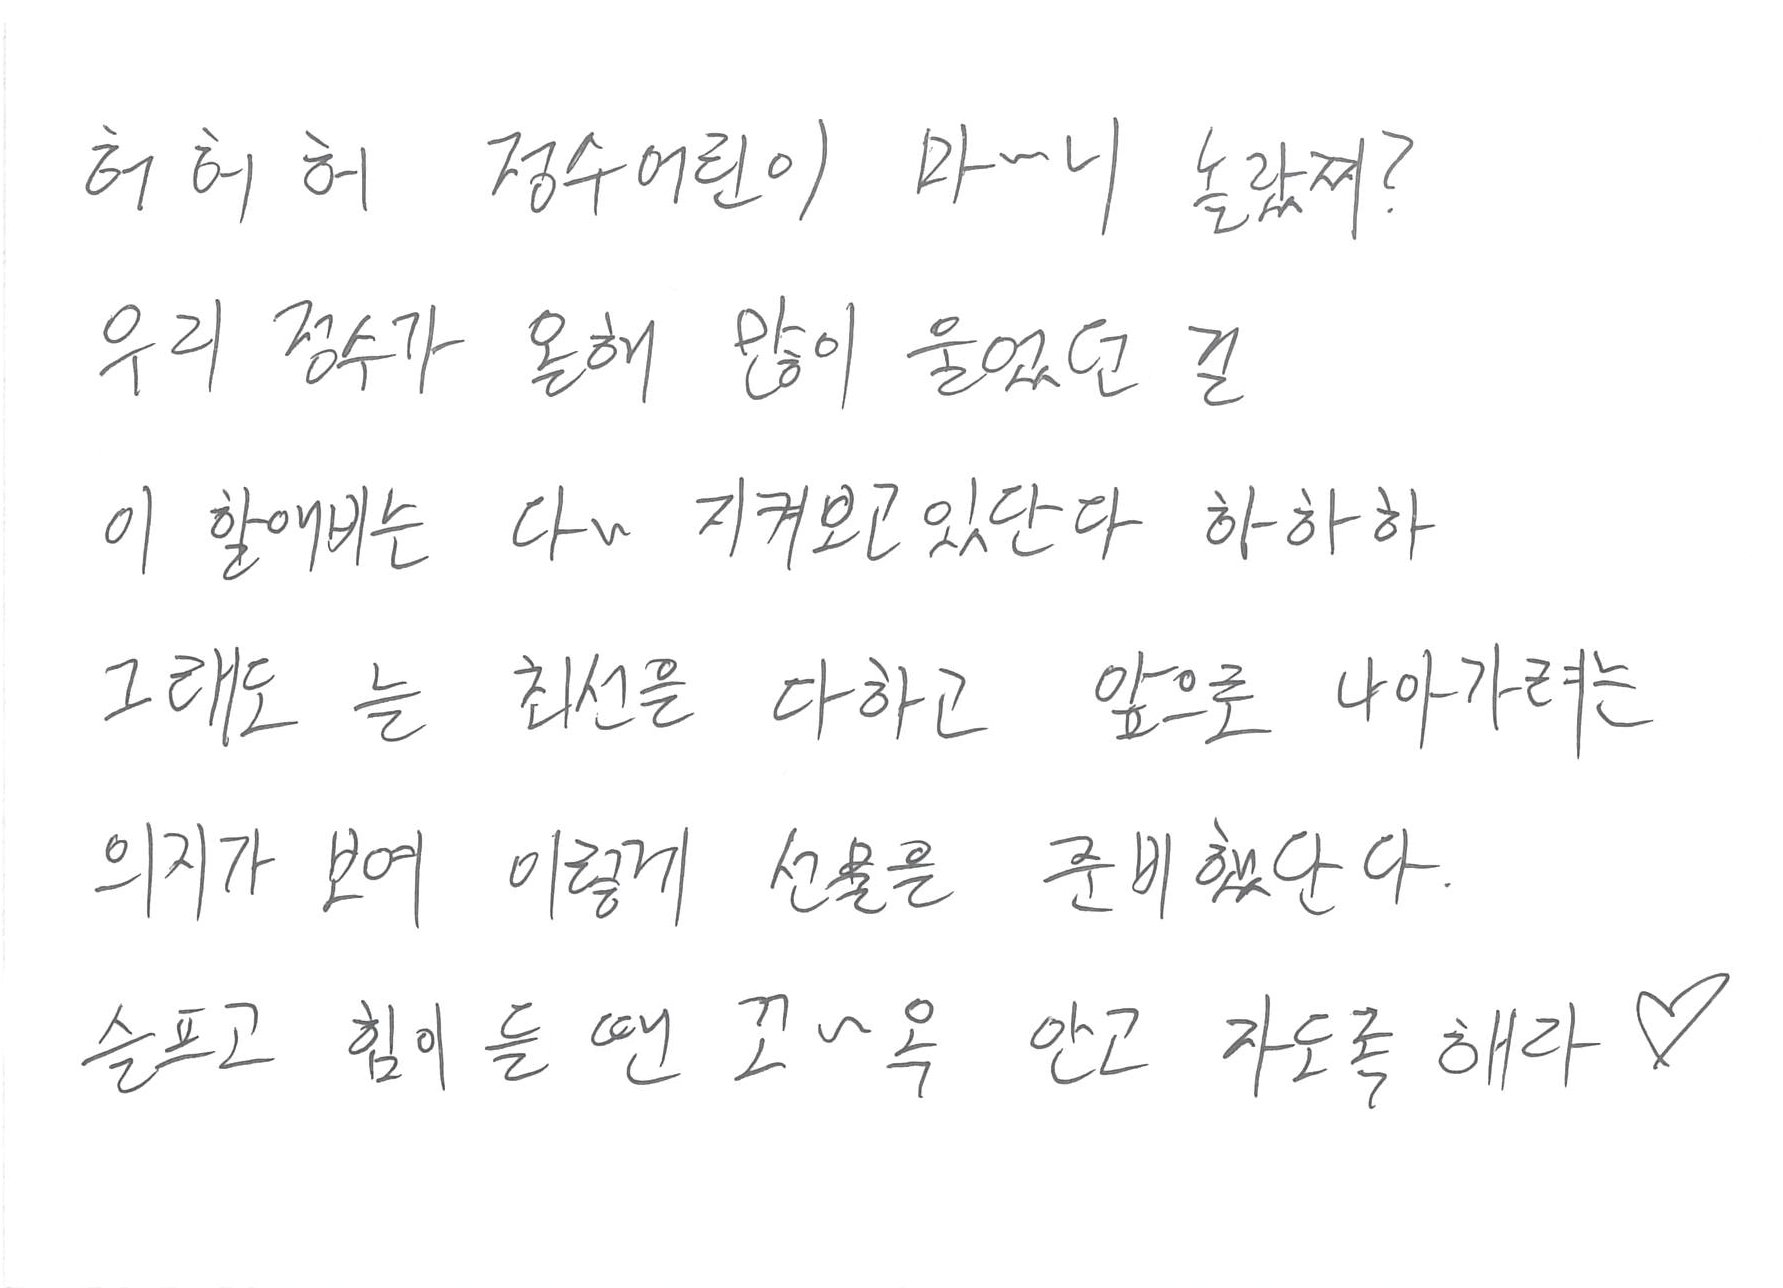 허 허 허 정수어린이 마~~니 놀랐찌?
우리 정수가 올해 많이 울었던 걸
이 할애비는 다~~ 지켜보고있단다 하하하
그래도 늘 최선을 다하고 앞으로 나아가려는
의지가 보여 이렇게 선물을 준비했단다.
슬프고 힘이 들 땐 꼬~~옥 안고 자도록 해라 ♡